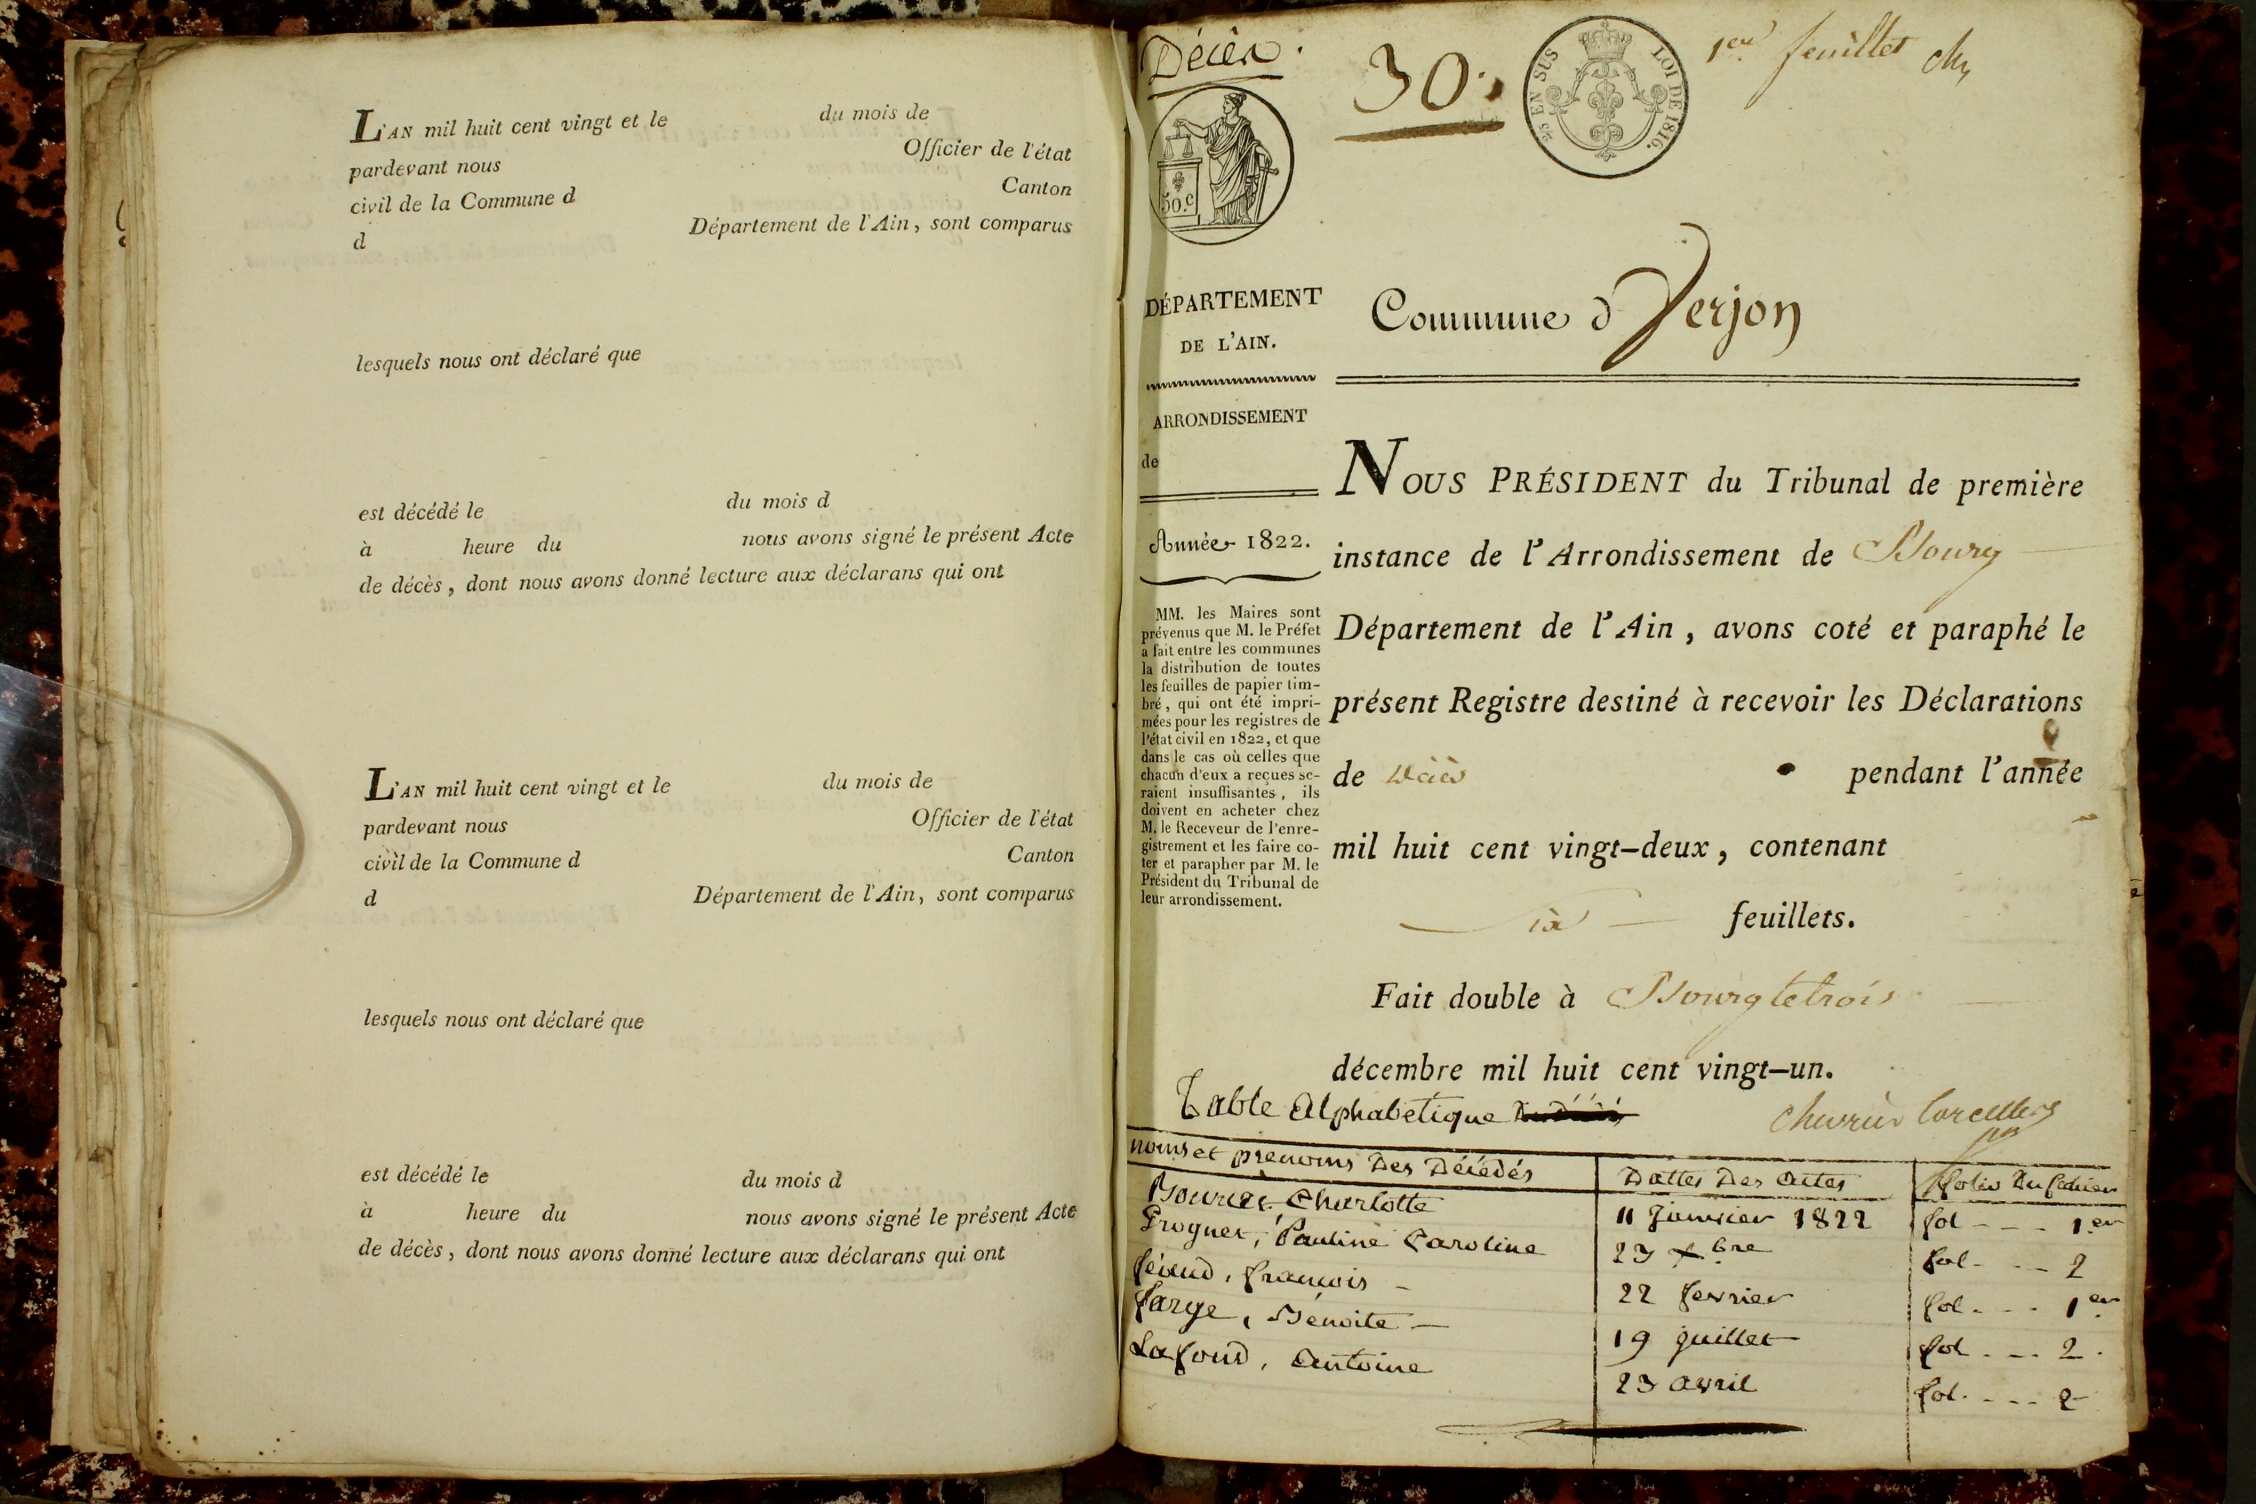 L'AN mil huit cent vingt et le du mois de
pardevant nous Officier de l'état
civil de la Commune d Canton
d Département de l'Ain, sont comparus
lesquels nous ont déclaré que
est décédé le du mois d
à heure du nous avons signé le présent Acte
de décès, dont nous avons donné lecture aux déclarans qui ont
L'AN mil huit cent vingt et le du mois de
pardevant nous Officier de l'état
civil de la Commune d Canton
d Département de l'Ain, sont comparus
lesquels nous ont déclaré que
est décédé le du mois d
à heure du nous avons signé le présent Acte
de décès, dont nous avons donné lecture aux déclarans qui ont
Décès.
30.
25 EN SUS LOI DE 1816.
1er feuillet
50.c
DÉPARTEMENT
DE L'AIN.
ARRONDISSEMENT
de
Année 1822.
MM. les Maires sont
prévenus que M. le Préfet
a fait entre les communes
la distribution de toutes
les feuilles de papier tim-
bré, qui ont été impri-
mées pour les registres de
l'état civil en 1822, et que
dans le cas où celles que
chacun d'eux a reçues se-
raient insuffisantes, ils
doivent en acheter chez
M. le Receveur de l'enre-
gistrement et les faire co-
ter et parapher par M. le
Président du Tribunal de
leur arrondissement.
Commune d Verjon
NOUS PRÉSIDENT du Tribunal de première
instance de l'Arrondissement de Bourg
Département de l'Ain, avons coté et paraphé le
présent Registre destiné à recevoir les Déclarations
de décès pendant l'année
mil huit cent vingt-deux, contenant
six feuillets.
Fait double à Bourg le trois
décembre mil huit cent vingt-un.
Table Alphabetique
noms et prenoms Des Décédés Dattes Des Actes folio Du Cahier
Bouvier Charlotte 11 Janvier 1822 fol - - - 1er
Progner, Pauline Caroline 23 xbre fol - - - 2
féaud, francois - 22 fevrier fol - - - 1er
farge, Bénoite - 19 juillet fol - - - 2.
Lafond, Antoine 23 avril fol - - - 2